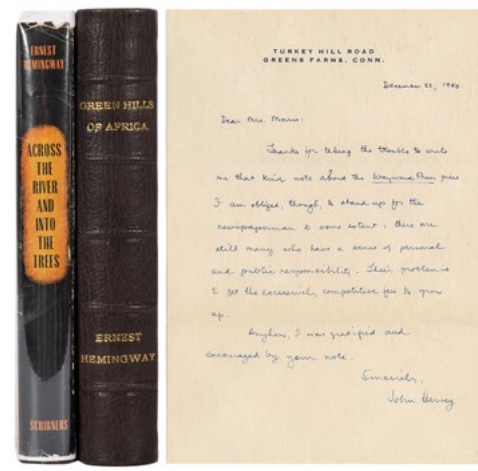 ERNEST
HEMINGWAY
ACROSS
THE
RIVER
AND
INTO
THE
TREES
SCRIBNERS
GREEN HILLS
OF AFRICA
ERNEST
HEMINGWAY
TURKEY HILL ROAD
GREENS FARMS, CONN.
December 22,
Dear Mrs. Morris:
Thanks for taking the trouble to write
me that kind note about the Wayward Press piece.
I am obliged, though, to stand up for the
newspaperman to some extent: there are
still many who have a sense of personal
and public responsibility. Their problem is
to get the excessively competitive few to grow
up.
Anyhow, I was gratified and
encouraged by your note.
Sincerely,
John Hersey